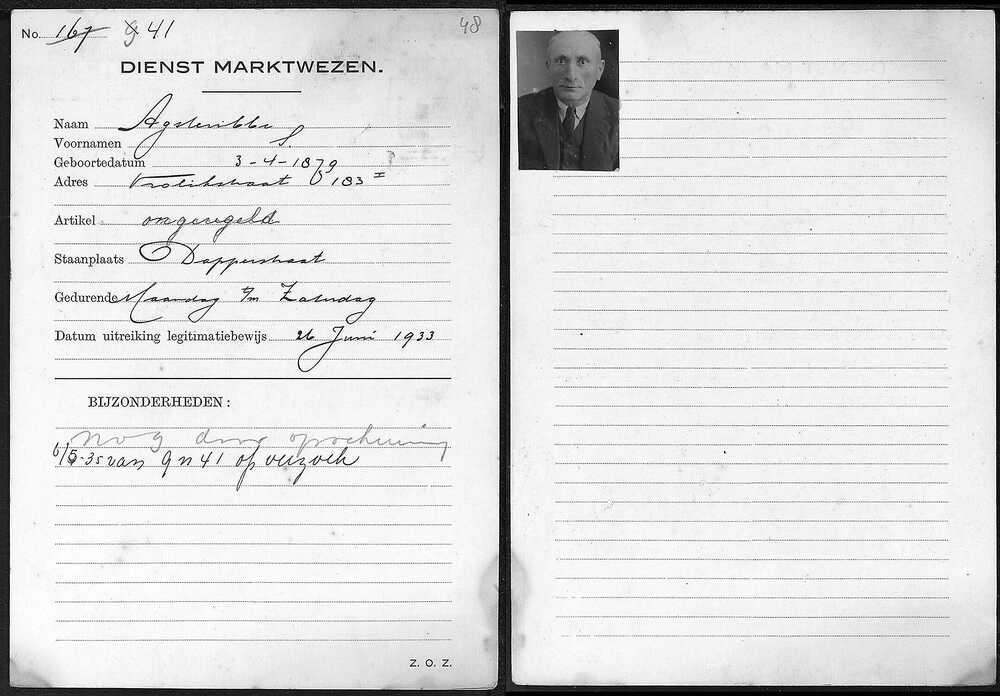 No. 167 9 41
48
DIENST MARKTWEZEN.
Naam Agsteribbe
Voornamen S.
Geboortedatum 3-4-1879 ?
Adres Vrolikstraat 183 I
Artikel ongeregeld
Staanplaats Dapperstraat
Gedurende Maandag t/m Zaterdag
Datum uitreiking legitimatiebewijs 26 Juni 1933
BIJZONDERHEDEN:
nog door
6/5-35 van 9 n 41 op verzoek
Z. O. Z.